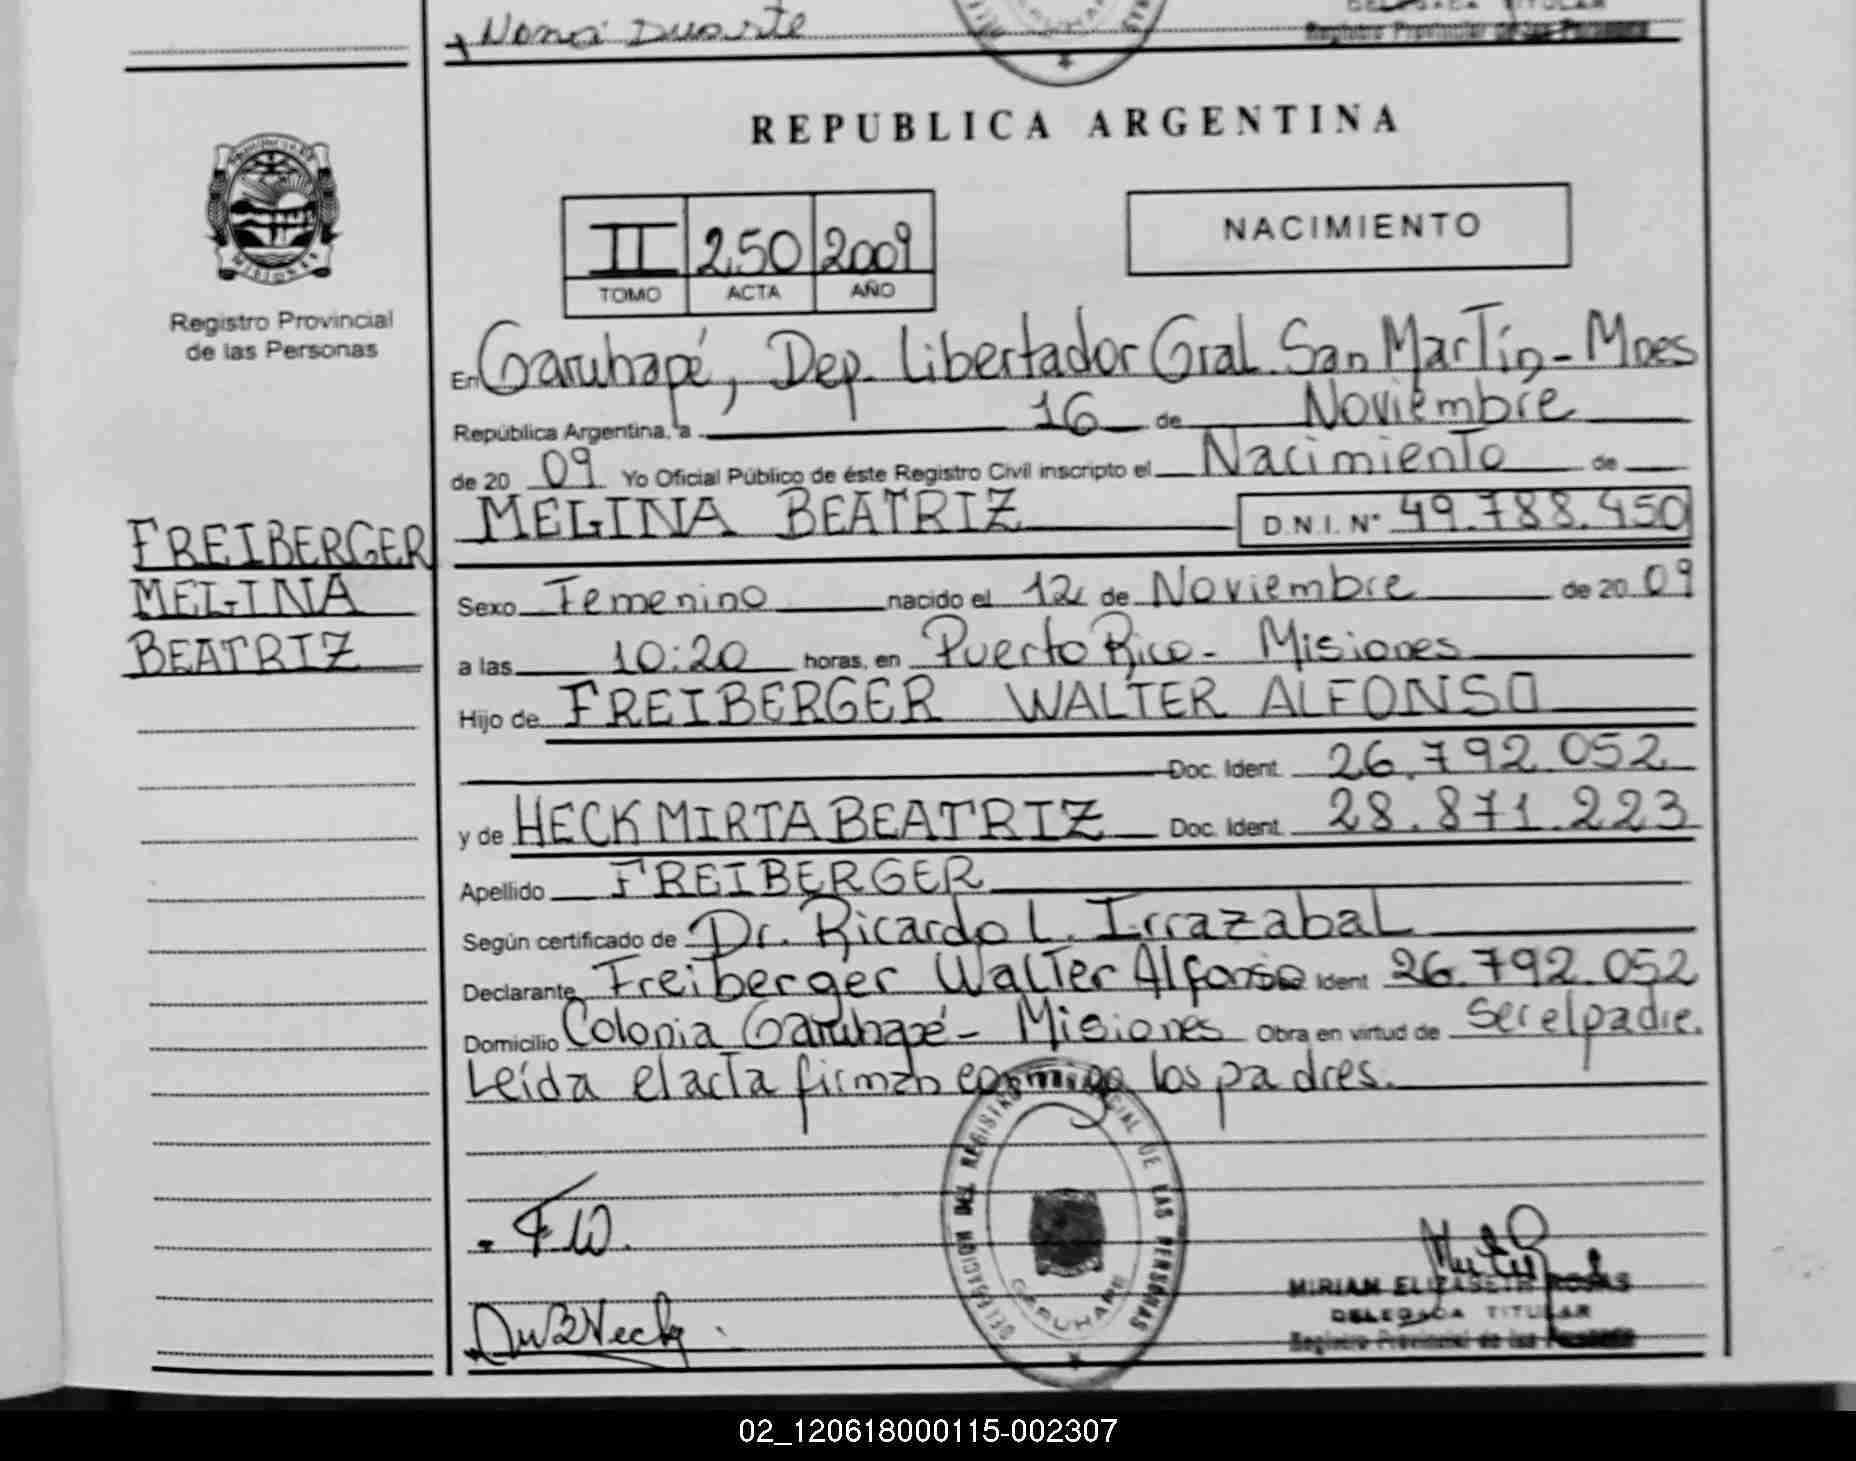 Nanci Duarte
DELEGADA TITULAR
Registro Provincial de las Personas
REPUBLICA ARGENTINA
MISIONES
Registro Provincial
de las Personas
II 250 2009
TOMO ACTA AÑO
NACIMIENTO
En Garuhapé, Dep. Libertador Gral. San Martín - Mnes
República Argentina, a 16 de Noviembre
de 20 09 Yo Oficial Público de éste Registro Civil inscripto el Nacimiento de
MELINA BEATRIZ D.N.I. Nº 49.788.450
FREIBERGER
MELINA
BEATRIZ
Sexo Femenino nacido el 12 de Noviembre de 20 09
a las 10:20 horas, en Puerto Rico - Misiones
Hijo de FREIBERGER WALTER ALFONSO
Doc. Ident. 26.792.052
y de HECK MIRTA BEATRIZ Doc. Ident. 28.871.223
Apellido FREIBERGER
Según certificado de Dr. Ricardo L. Irrazabal
Declarante Freiberger Walter Alfonso Ident 26.792.052
Domicilio Colonia Garuhapé - Misiones Obra en virtud de ser el padre.
Leída el acta firman conmigo los padres.
DELEGACION DEL REGISTRO PROVINCIAL DE LAS PERSONAS
GARUHAPE
F W.
MIRIAM ELIZABETH ROJAS
DELEGADA TITULAR
Registro Provincial de las Personas
02_120618000115-002307